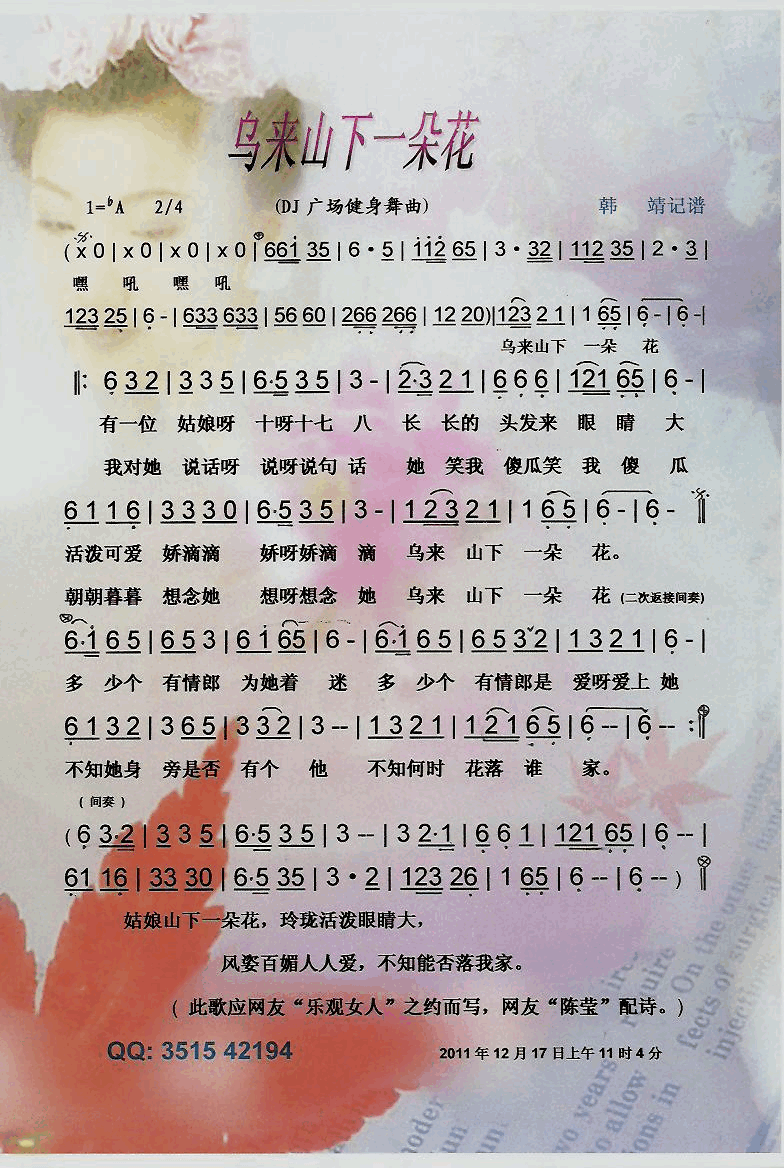 乌来山下一朵花
1=♭A 2/4 (DJ 广场健身舞曲) 韩 靖记谱
( x 0 | x 0 | x 0 | x 0 | 661 35 | 6 · 5 | 112 65 | 3 · 32 | 112 35 | 2 · 3 |
嘿 吼 嘿 吼
123 25 | 6 - | 633 633 | 56 60 | 266 266 | 12 20 )| 123 2 1 | 1 65 | 6 - | 6 - |
乌来山下 一朵 花
‖: 6 3 2 | 3 3 5 | 6·5 3 5 | 3 - | 2·3 2 1 | 6 6 6 | 121 65 | 6 - |
有一位 姑娘呀 十呀十七 八 长 长的 头发来 眼 睛 大
我对她 说话呀 说呀说句 话 她 笑我 傻瓜笑 我 傻 瓜
6 1 1 6 | 3 3 3 0 | 6·5 3 5 | 3 - | 1 2 3 2 1 | 1 6 5 | 6 - | 6 - ‖
活泼可爱 娇滴滴 娇呀娇滴 滴 乌来 山下 一朵 花。
朝朝暮暮 想念她 想呀想念 她 乌来 山下 一朵 花 (二次返接间奏)
6·1 6 5 | 6 5 3 | 6 1 65 | 6 - | 6·1 6 5 | 6 5 3 2 | 1 3 2 1 | 6 - |
多 少个 有情郎 为她着 迷 多 少个 有情郎是 爱呀爱上 她
6 1 3 2 | 3 6 5 | 3 3 2 | 3 -- | 1 3 2 1 | 1 2 1 6 5 | 6 -- | 6 -- :‖
不知她身 旁是否 有个 他 不知何时 花落 谁 家。
( 间奏 )
( 6 3·2 | 3 3 5 | 6·5 3 5 | 3 -- | 3 2·1 | 6 6 1 | 121 65 | 6 -- |
61 16 | 33 30 | 6·5 35 | 3 · 2 | 123 26 | 1 65 | 6 -- | 6 -- ) ‖
姑娘山下一朵花，玲珑活泼眼睛大，
风姿百媚人人爱，不知能否落我家。
( 此歌应网友“乐观女人”之约而写，网友“陈莹”配诗。)
QQ: 3515 42194 2011 年 12 月 17 日上午 11 时 4 分
On the other
fects of
require
two years
to allow